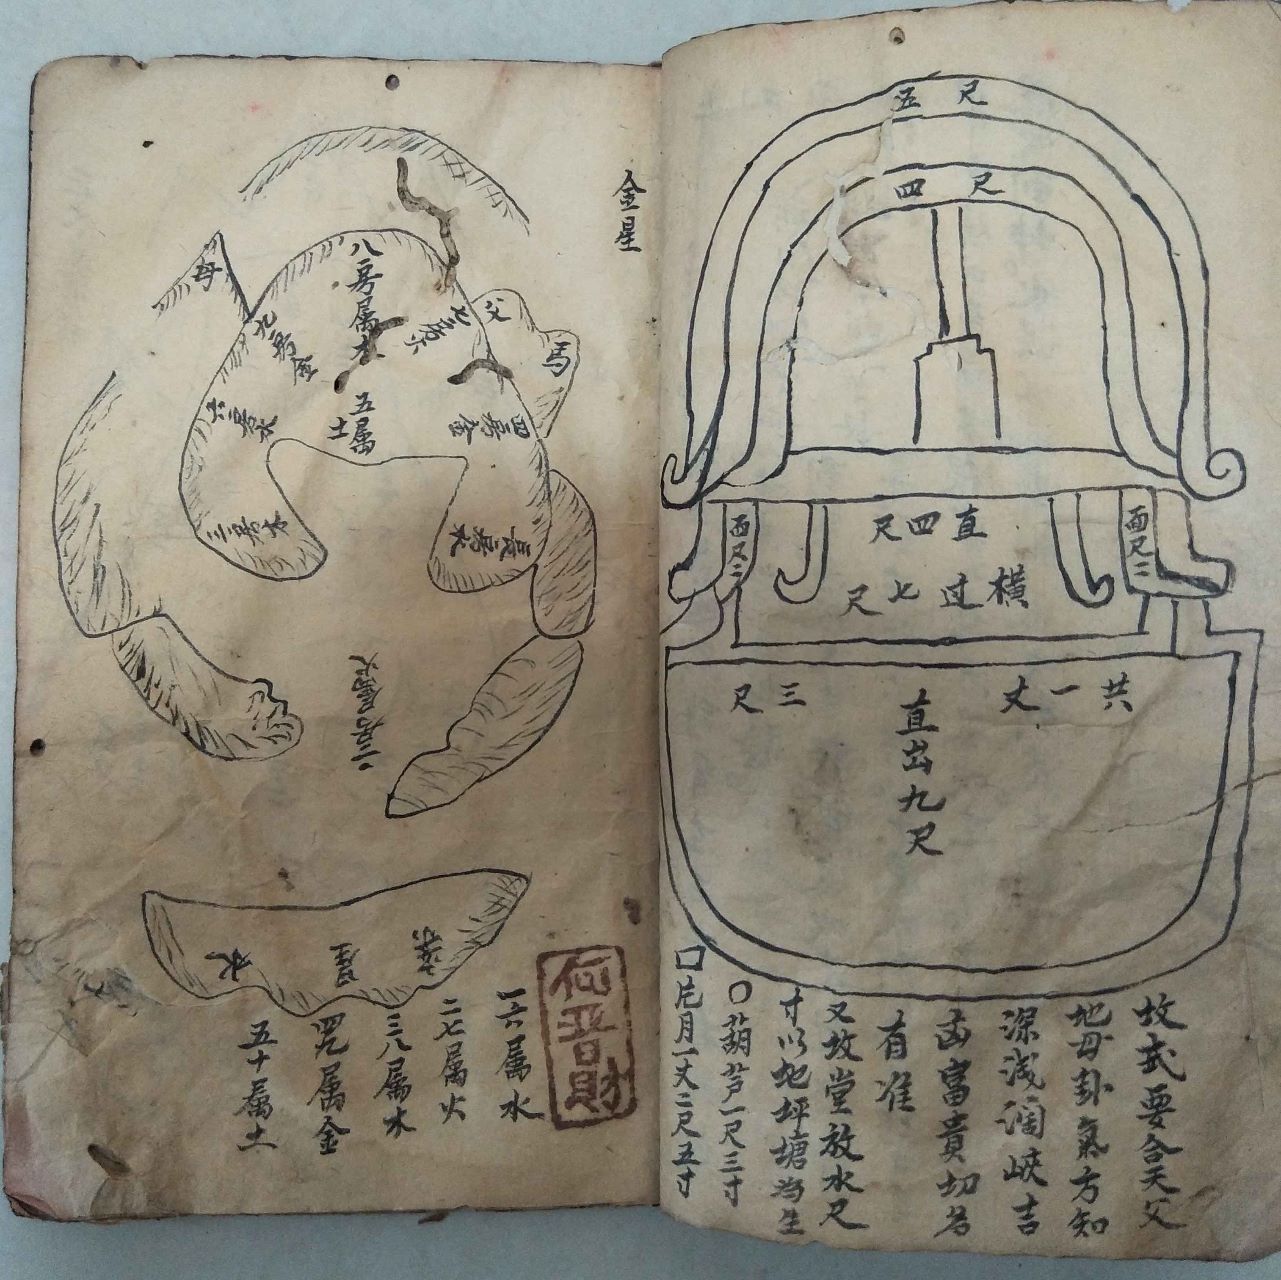 五尺
四尺
直四尺
面尺二
面尺二
橫过七尺
共一丈三尺
直出九尺
坟式要合天父
地母卦氣方知
深浅濶峽吉
凶富貴切名
有准
又坟堂放水尺
寸以地坪塘為生
〇葫芦一尺三寸
口月一丈二尺五寸
金星
父
馬
母
八房属木
七房火
九房金
六房水
五属土
四房金
三房木
長房水
二房属火
水
一六属水
二七属火
三八属木
四九属金
五十属土
何晋財